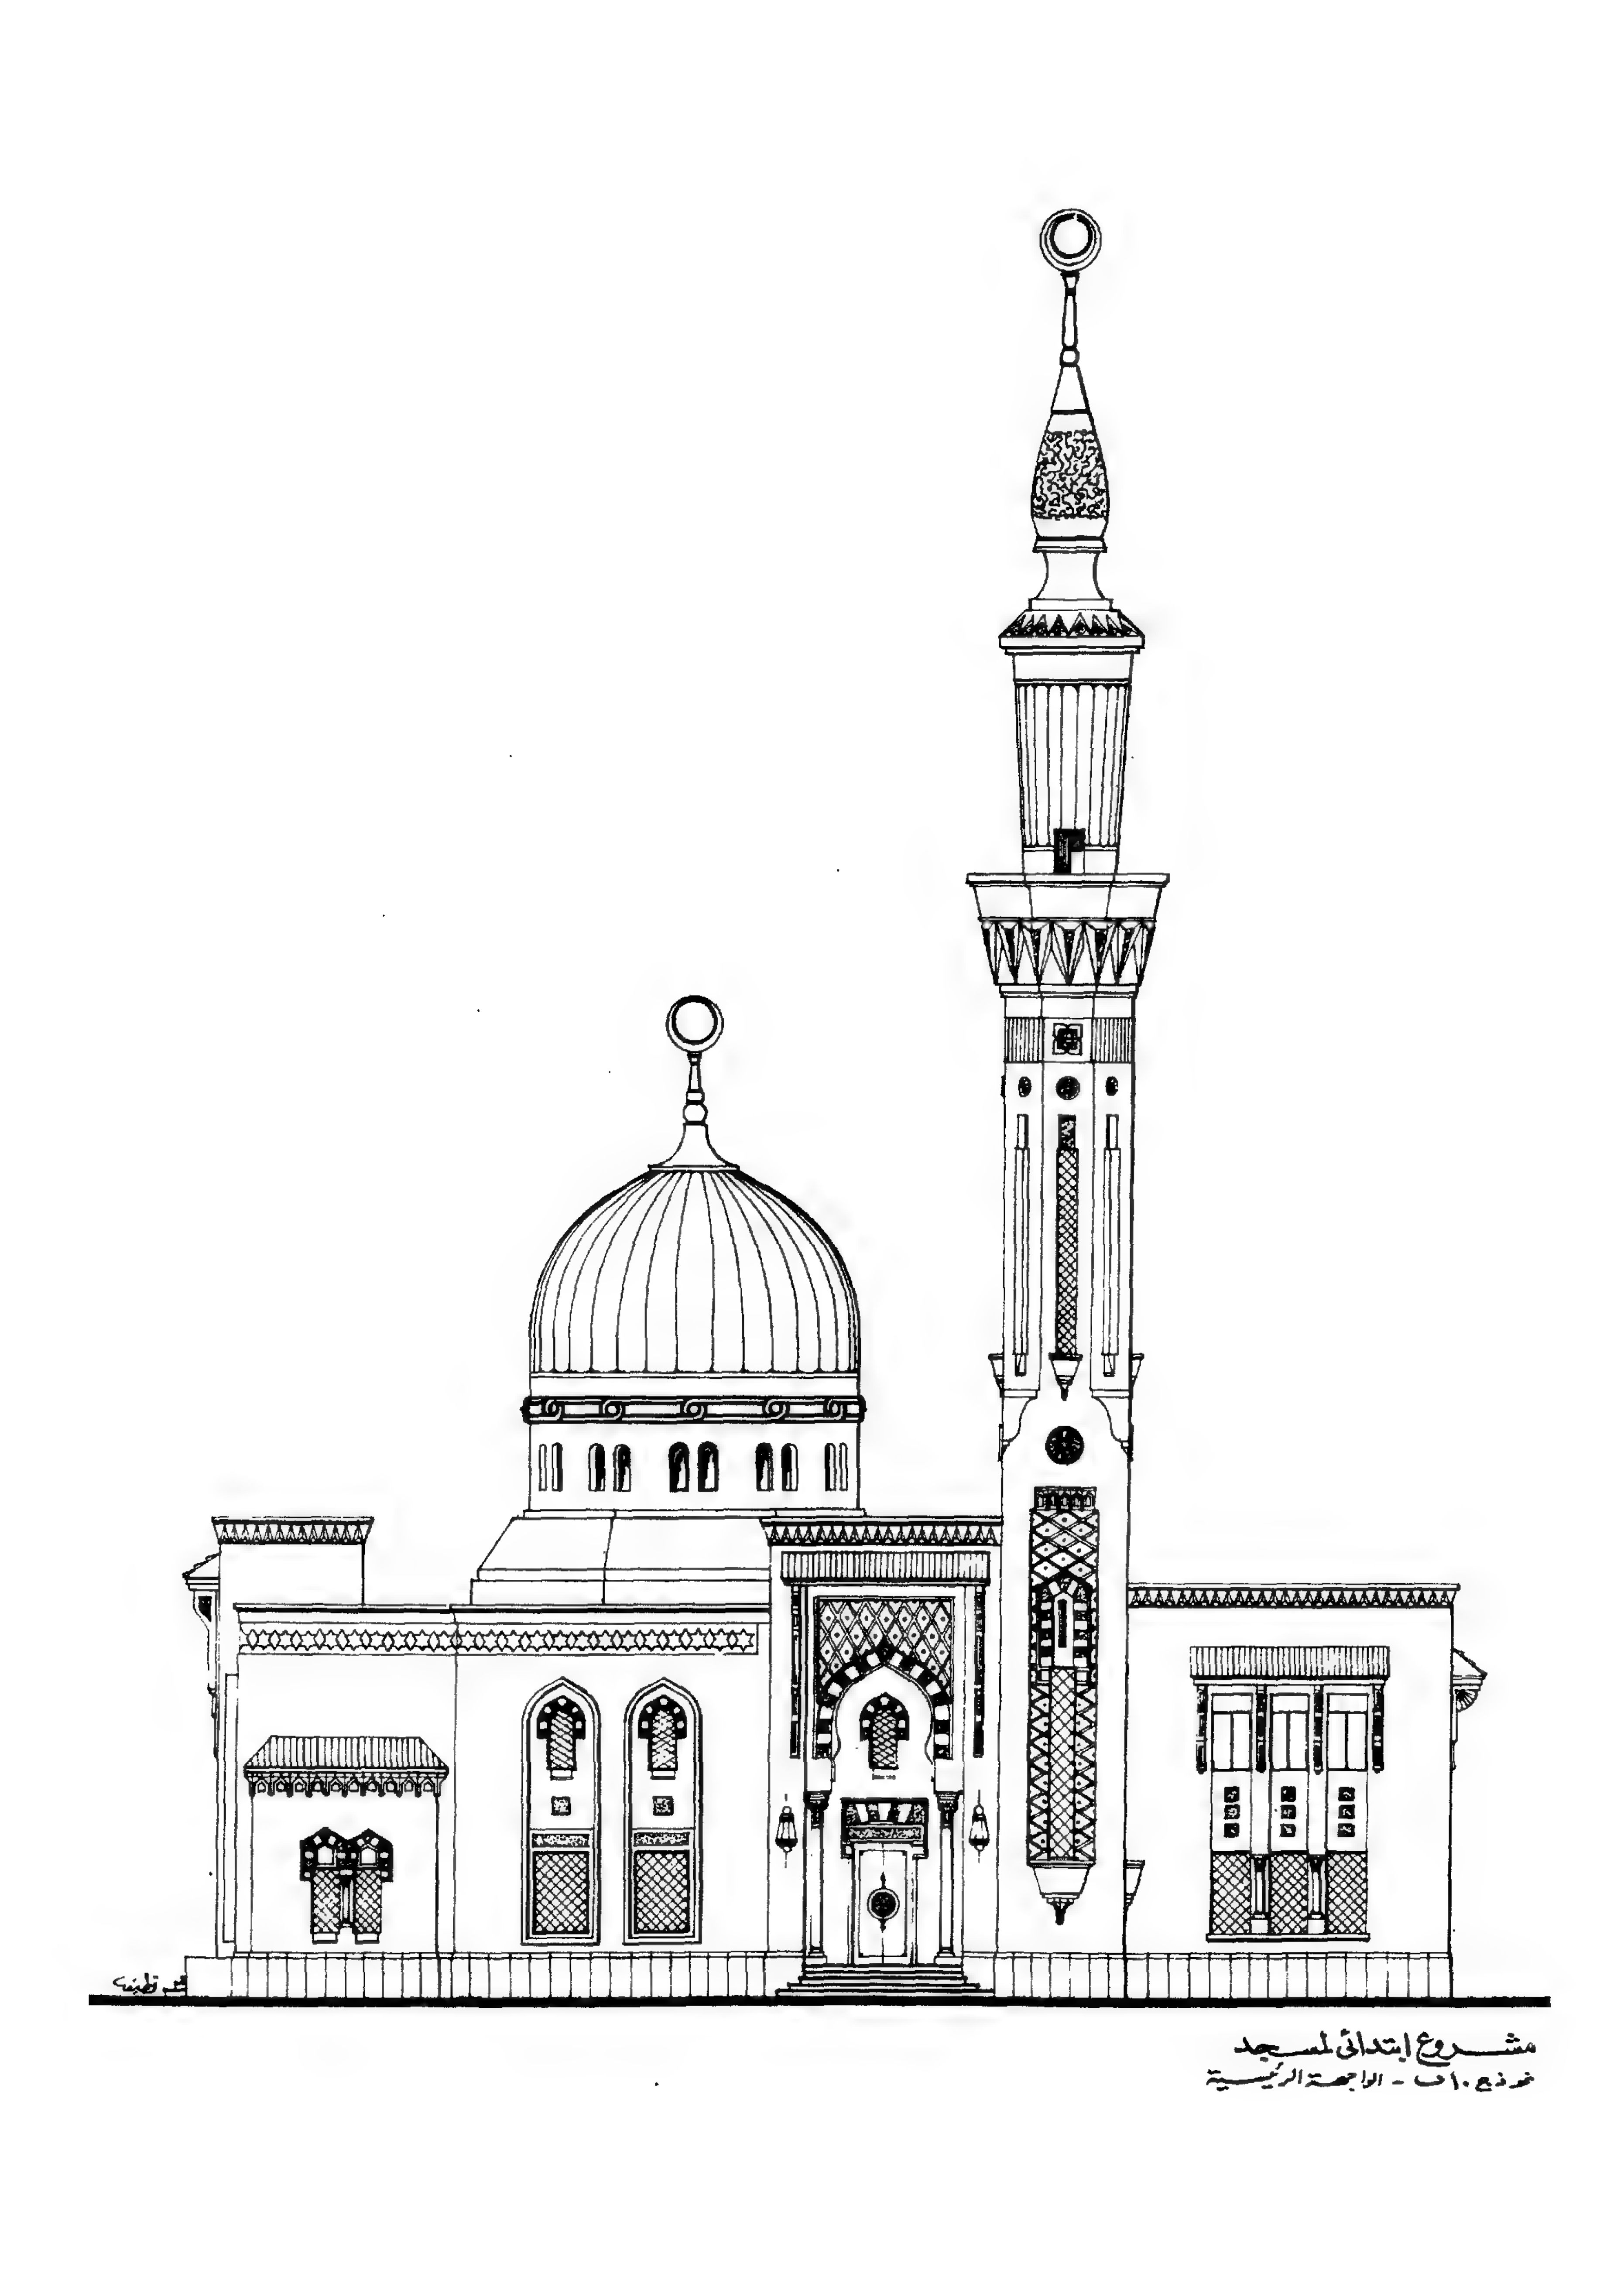 مشروع ابتدائى لمسجد
نموذج ١٠ ف - الواجهة الرئيسية